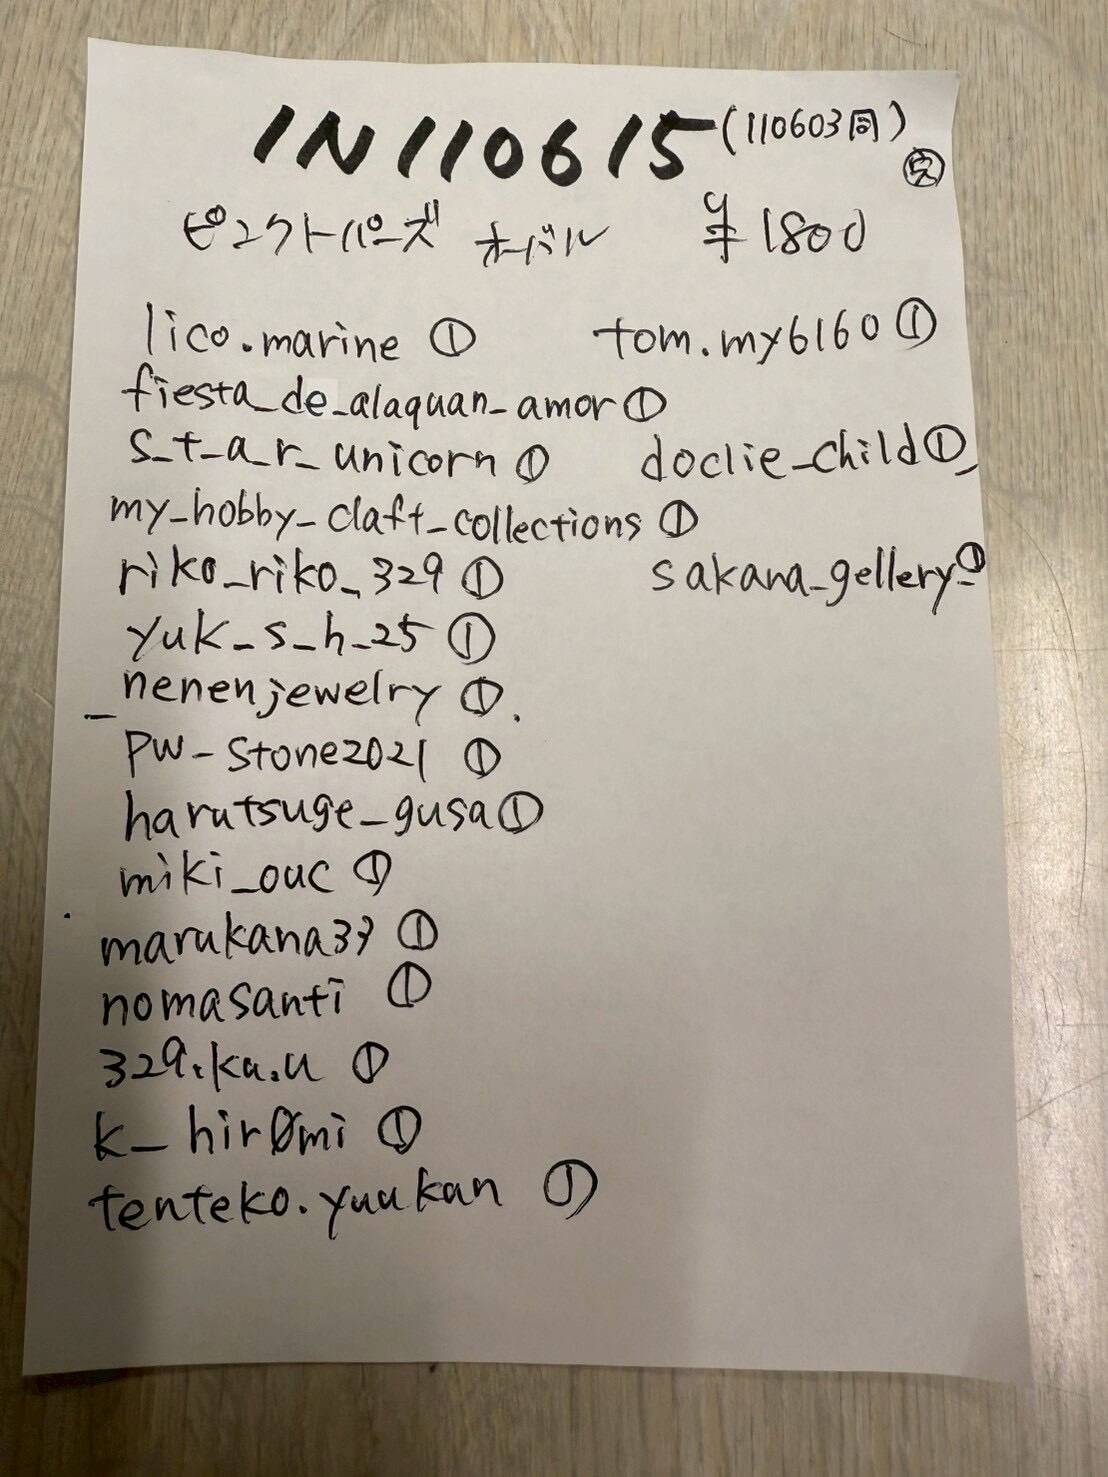 IN110615 (110603同)
㊪
ピンクトパーズ オーバル ¥1800
lico.marine ① tom.my6160 ①
fiesta_de_alaquan_amor ①
s_t_a_r_unicorn ① doclie_child ①
my_hobby_claft_collections ①
riko_riko_329 ① sakana_gellery_ ①
yuk_s_h_25 ①
_nenenjewelry ①
pw_stone2021 ①
harutsuge_gusa ①
miki_ouc ①
marukana33 ①
nomasanti ①
329.ka.u ①
k_hir0mi ①
tenteko.yuukan ①